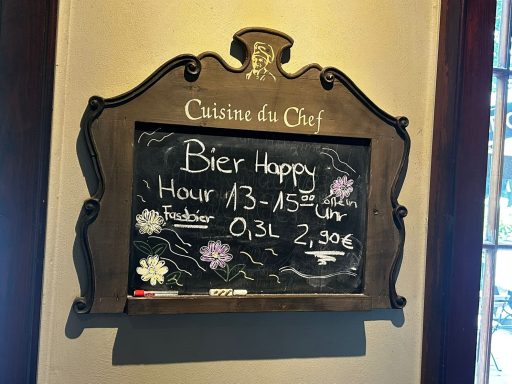 Cuisine du Chef
Bier Happy
Hour 13-15⁰⁰ Uhr
Fassbier 0,3L 2,90€